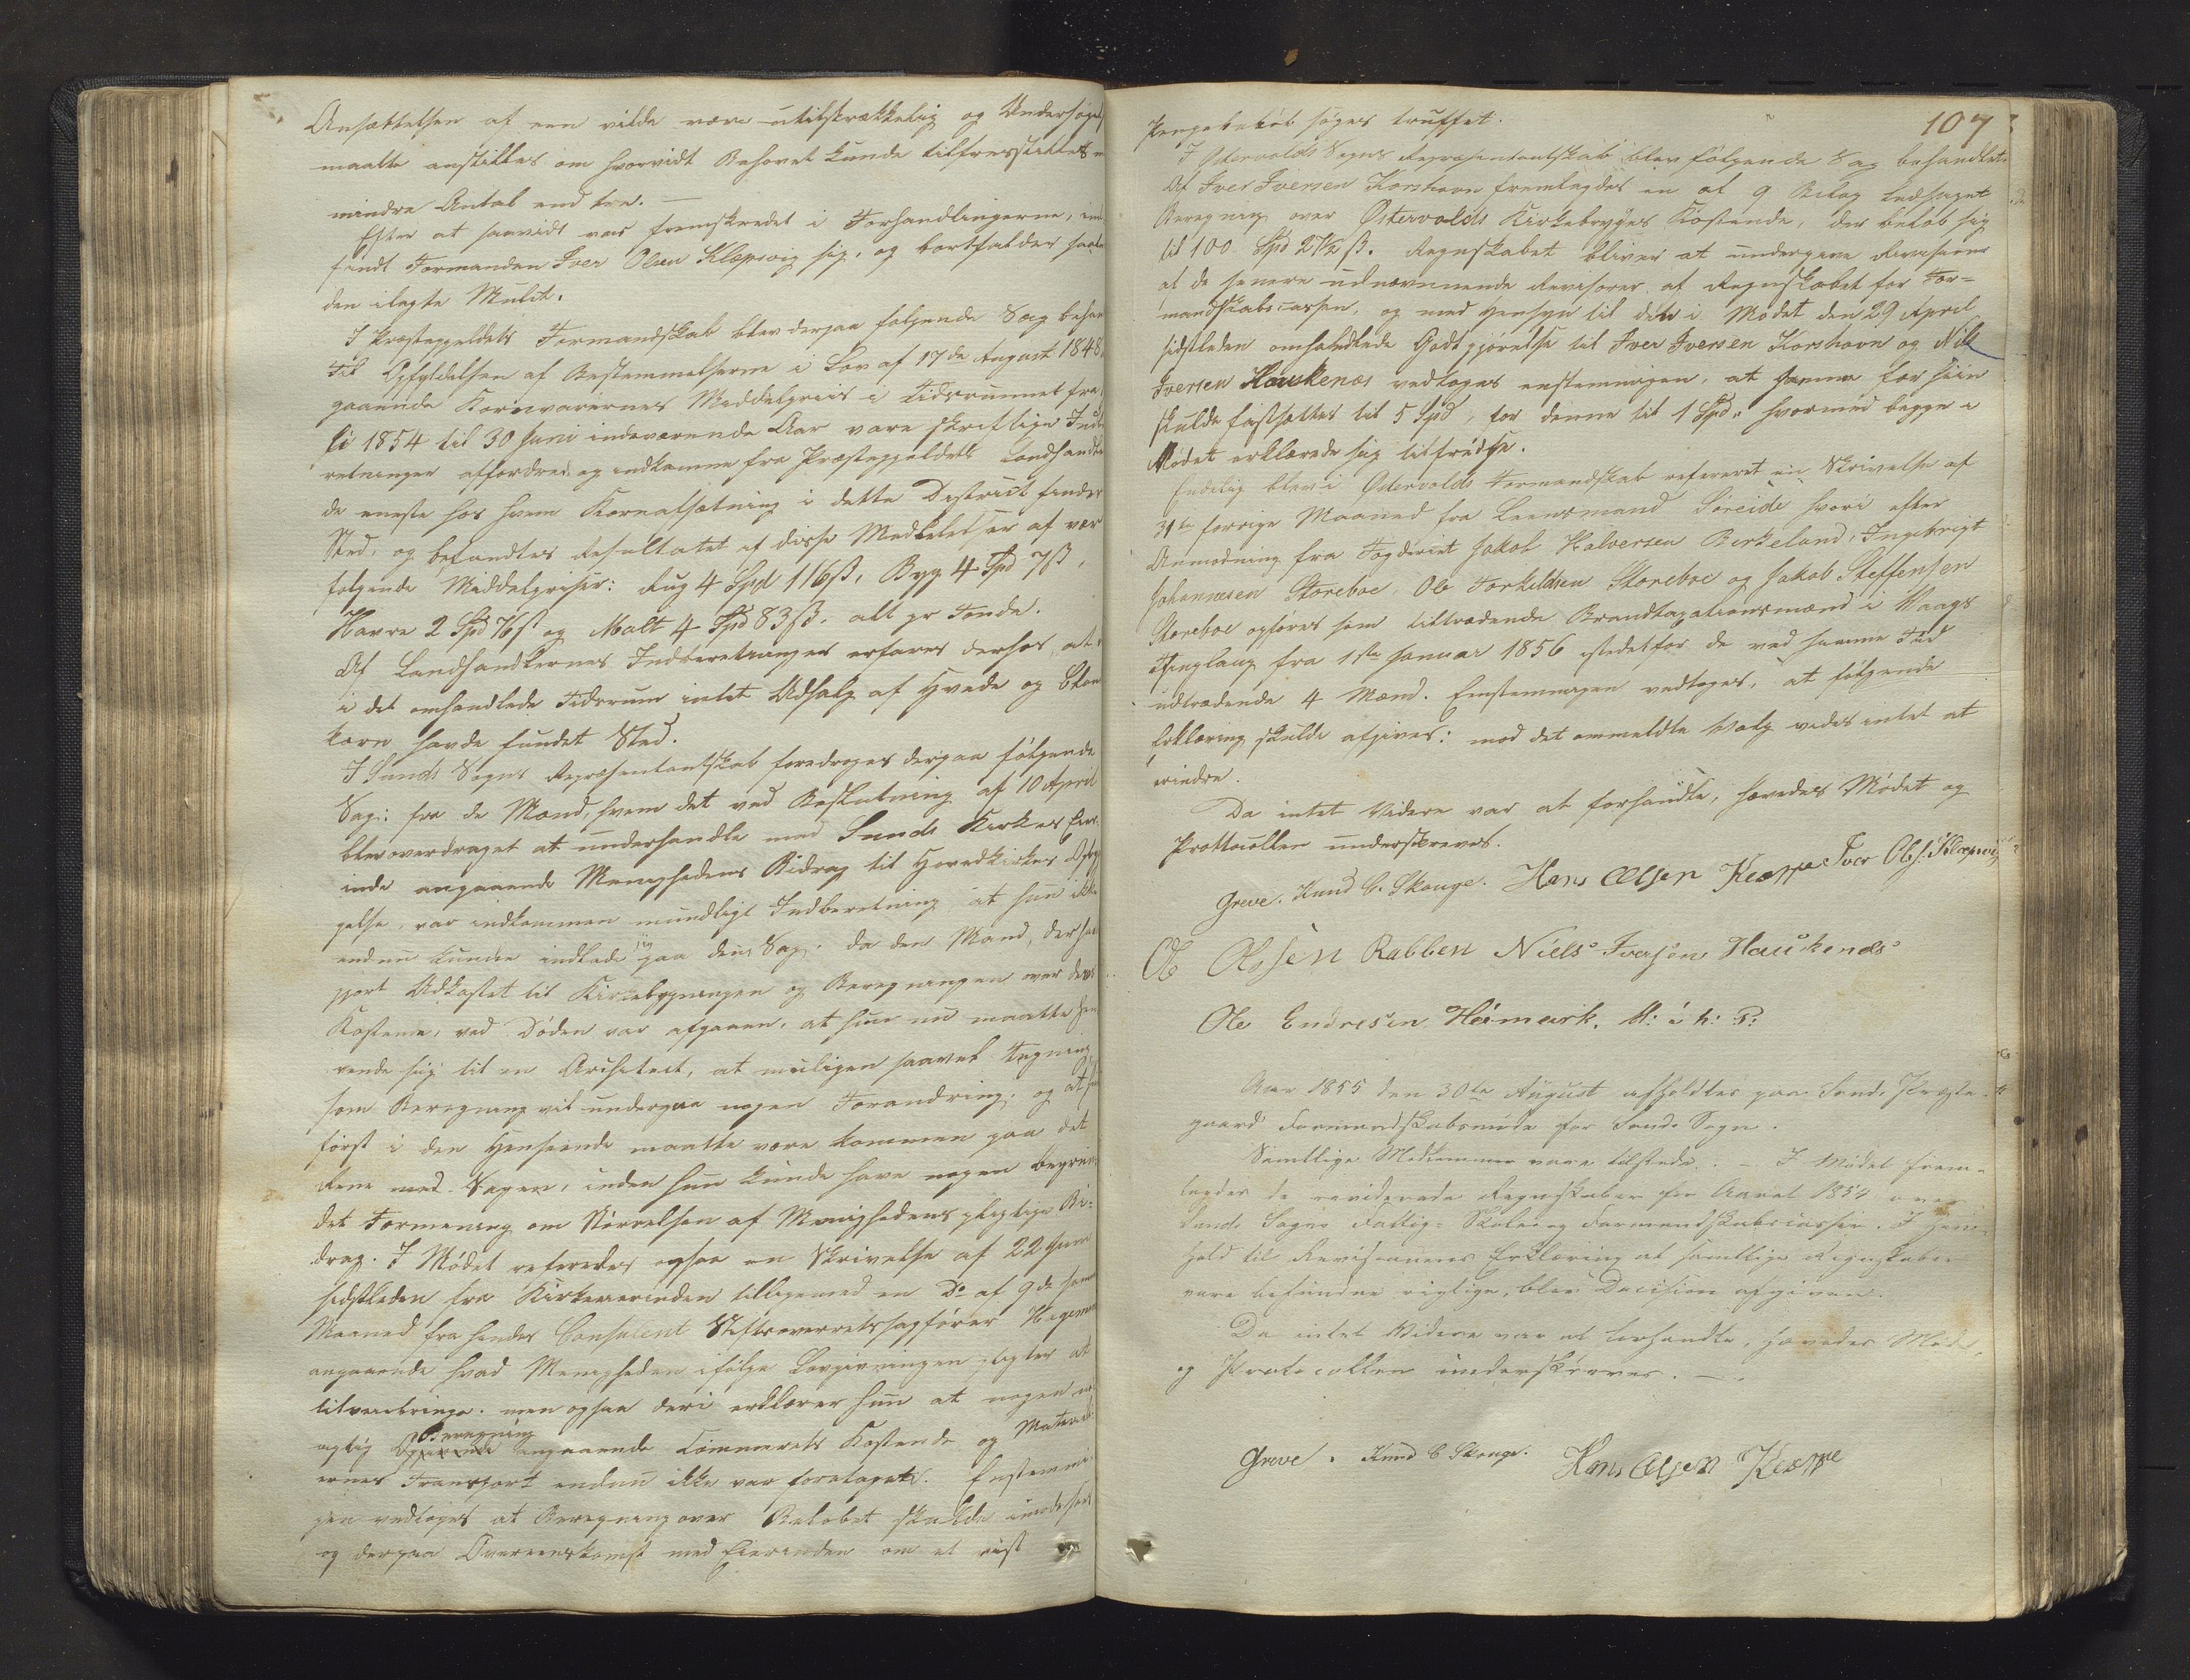 Ansættelsen af een vilde være utilstrækkelig og Undersøgels
maatte anstilles om hvorvidt Behovet kunde tilfredsstilles m
mindre Antal end tre. —
Efter at saavidt var fremskredet i Forhandlingerne, ind-
fandt Formanden Iver Olsen Klepsvig sig, og bortfalder saale
den ilagte Mulct.
I Præstegjeldets Formandskab blev derpaa følgende Sag behan
Til Opfyldelsen af Bestemmelserne i Lov af 17de August 1848,
gaaende Kornvarernes Middelpriis i Tidsrummet fra
li 1854 til 30 Juni indeværende Aar vare skriftlige Indbe
retninger affordret og indkomne fra Præstegjeldets Landhandle
de eneste hos hvem Kornafsætning i dette District finder
Sted, og befandtes Resultatet af disse Meddelelser af være
følgende Middelpriser: Rug 4 Spd 116 ß, Byg 4 Spd 7 ß,
Havre 2 Spd 76 ß og Malt 4 Spd 83 ß. alt pr Tønde.
Af Landhandlernes Indberetninger erfares derhos, at
i det omhandlede Tidsrum intet Udsalg af Hvede og Blan
korn havde fundet Sted.
I Sunds Sogns Repræsentantskab foredroges derpaa følgende
Sag: fra de Mænd, hvem det ved Beslutning af 10 April
blev overdraget at underhandle med Sunds Kirkes Eier-
inde angaaende Menighedens Bidrag til Hovedkirkens Opbyg
gelse, var indkommen mundtligt Indberetning at hun ikke
endnu kunde indlade sig paa den Sag, da den Mand, der hav
gjort Udkastet til Kirkebygningen og Beregningen over dens
Kostende, ved Døden var afgaaen, at hun nu maatte hen
vende sig til en Architect, at muligen saavel Tegning
som Beregning vil undergaa nogen Forandring, og at hun
først i den Henseende maatte være kommen paa det
Rene med Sagen, inden hun kunde have nogen begrun
det Formening om Størrelsen af Menighedens pligtige Bi-
drag. I Mødet refereredes ogsaa en Skrivelse af 22 Juni
sidstleden fra Kirkeeierinden tilligemed en Do af 9de samme
Maaned fra hendes Consulent Stiftsoverretssagfører Hagemann
angaaende hvad Menigheden ifølge Lovgivningen pligter at
tilveiebringe. men ogsaa deri erklærer hun at nogen nø
agtig Beregning angaaende Tømmerets Kostende og Materiali
ernes Transport endnu ikke var foretaget. Enstemmi-
gen vedtoges at Beregning over Beløbet skulde imødesees
og derpaa Overeenskomst med Eierinden om et vist
107
Pengebeløb søges truffet.
I Østervolds Sogns Repræsentantskab blev følgende Sag behandlet:
Af Iver Iversen Korshavn fremlagdes en af 9 Bilag ledsaget
Beregning over Østervolds Kirkebrygges Kostende, der beløb sig
til 100 Spd 27½ ß. Regnskabet bliver at undergive Revisions
af de senere udnævnende Revisorer af Regnskabet for For-
mandskabscassen, og med Hensyn til den i Mødet den 29 April
sidstleden omhandlede Godtgjørelse til Iver Iversen Korshavn og Nils
Iversen Haukenæs vedtoges enstemmigen, at samme for hiin
skulde fastsættes til 5 Spd, for denne til 1 Spd, hvormed begge i
Mødet erklærede sig tilfredse.
Endelig blev i Østervolds Formandskab refereret en Skrivelse af
31te forrige Maaned fra Leensmand Søreide hvori efter
Anmodning fra Fogderiet Jakob Halversen Birkeland, Ingebrigt
Johannesen Storebøe, Ole Torkildsen Storeboe og Jakob Steffensen
Storeboe opføres som tiltrædende Brandtaxationsmænd i Vaags
Thinglaug fra 1ste Januar 1856 istedetfor de ved samme Tid
udtrædende 4 Mænd. Enstemmigen vedtoges, at følgende
Erklæring skulde afgives: mod det anmeldte Valg vides intet at
erindre.
Da intet Videre var at forhandle, hævedes Mødet og
Prottocollen underskreves.
Greve. Knud C. Skouge. Hans Olsen Kleppe Iver Ols: Klepsvig
Ole Olssen Rabben Niels Iversøn Haukenæs
Ole Endresen Heimark. M: i h: P:
Aar 1855 den 30te August afholdtes paa Sunds Præste-
gaard Formandskabsmøde for Sunds Sogn.
Samtlige Medlemmer vare tilstede. — I Mødet frem-
lagdes de reviderede Regnskaber for Aaret 1854 over
Sunds Sogns Fattig- Skole og Formandskabscasser. I Hen-
hold til Revisorernes Erklæring at samtlige Regnskaber
vare befundne rigtige, blev Decision afgiven.
Da intet Videre var at forhandle, hævedes Mødet
og Protocollen underskreves. —
Greve. Knud C Skouge. Hans Olsen Kleppe